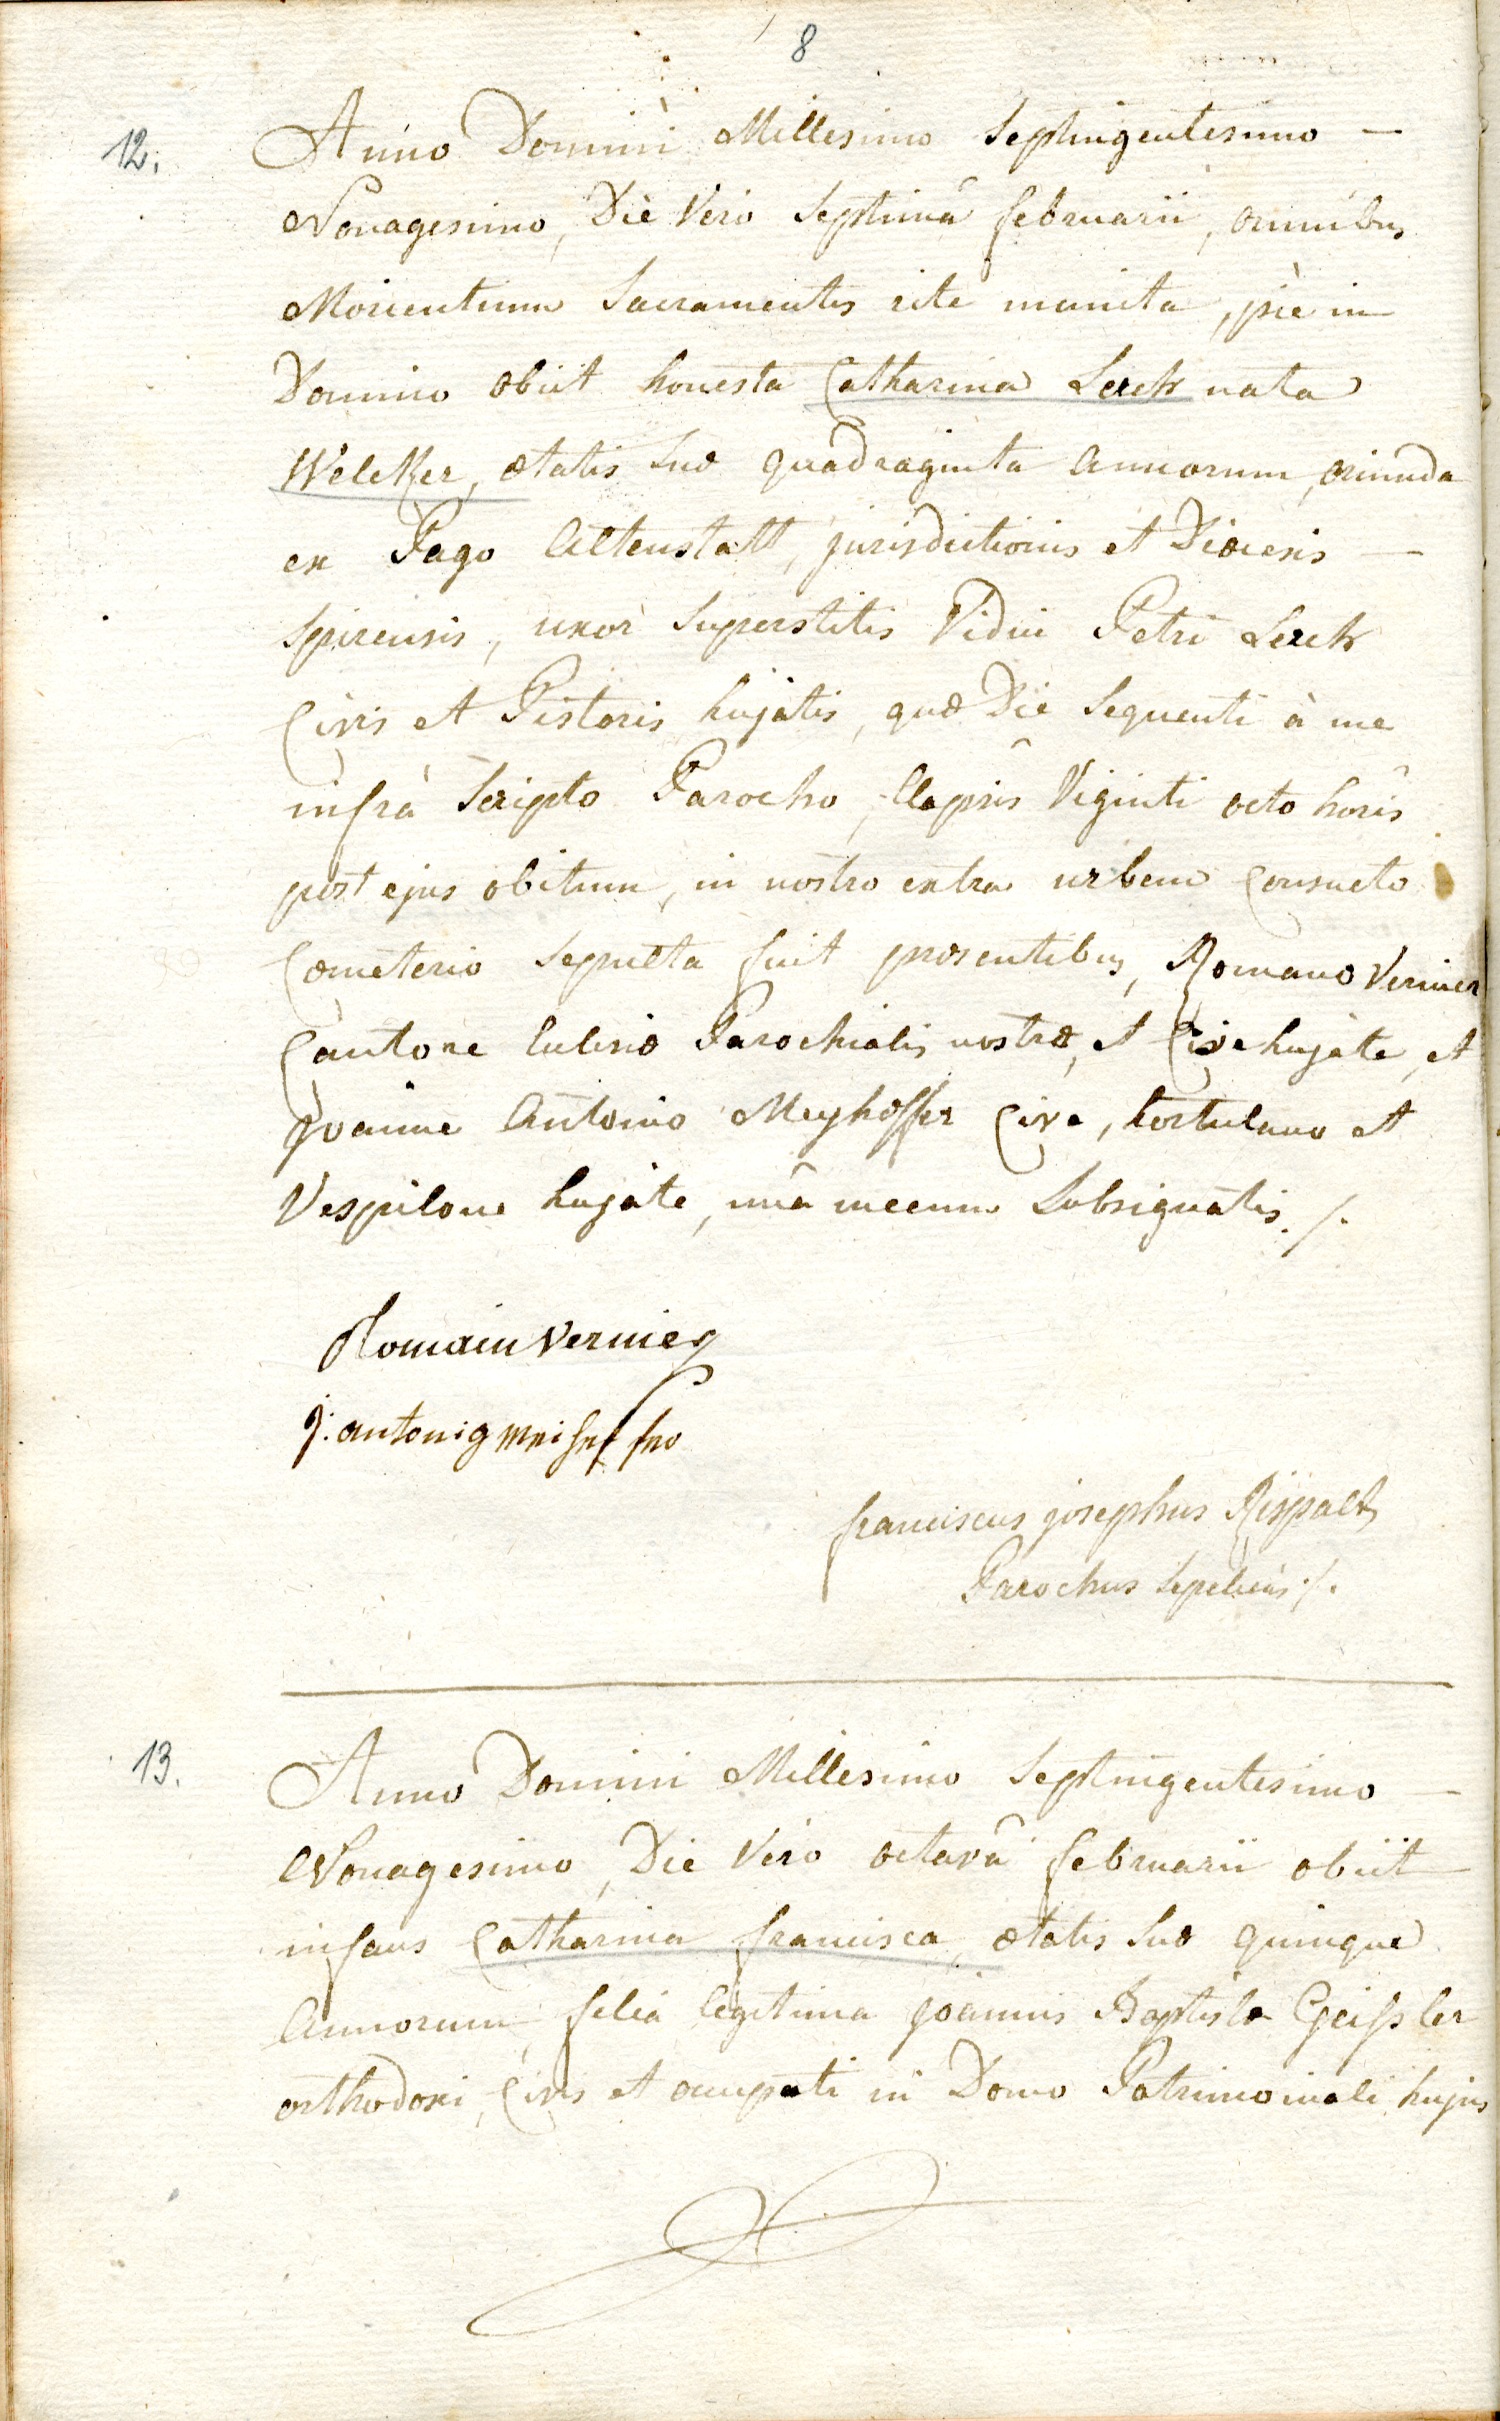 8
12.
Anno Domini Millesimo Septingentesimo —
Nonagesimo, Die Vero Septimâ februarii, omnibus
Morientium Sacramentis rite munita, piè in
Domino obiit honesta Catharina Lerch nata
Welcker, ætatis suæ quadraginta annorum, oriunda
ex Pago Altenstatt, jurisdictionis et Diœcesis —
Spirensis, uxor Superstitis Vidui Petri Lerch
Civis et Pistoris hujatis, quæ Die Sequenti à me
infrà Scripto Parocho, Elapsis Viginti octo horis
post ejus obitum, in nostro extra urbem Consueto
Cœmeterio Sepulta fuit præsentibus, Romano Vernier
Cantore Eclesiæ Parochialis nostræ, et Cive hujate, et
Joanne Antonio Meyhoffer Cive, hortulano et
Vespilone hujate, unâ mecum Subsignatis ./.
Romain Vernier
J: antonig
franciscus josephus Rispalt
Parochus Sepeliens ./.
13.
Anno Domini Millesimo Septingentesimo —
Nonagesimo, Die Vero octavâ februarii obiit
infans Catharina francisca, ætatis suæ quinque
Annorum, filia legitima Joannis Baptistæ Geissler
orthodoxi, Civis et occupati in Domo Patrimoniali hujus